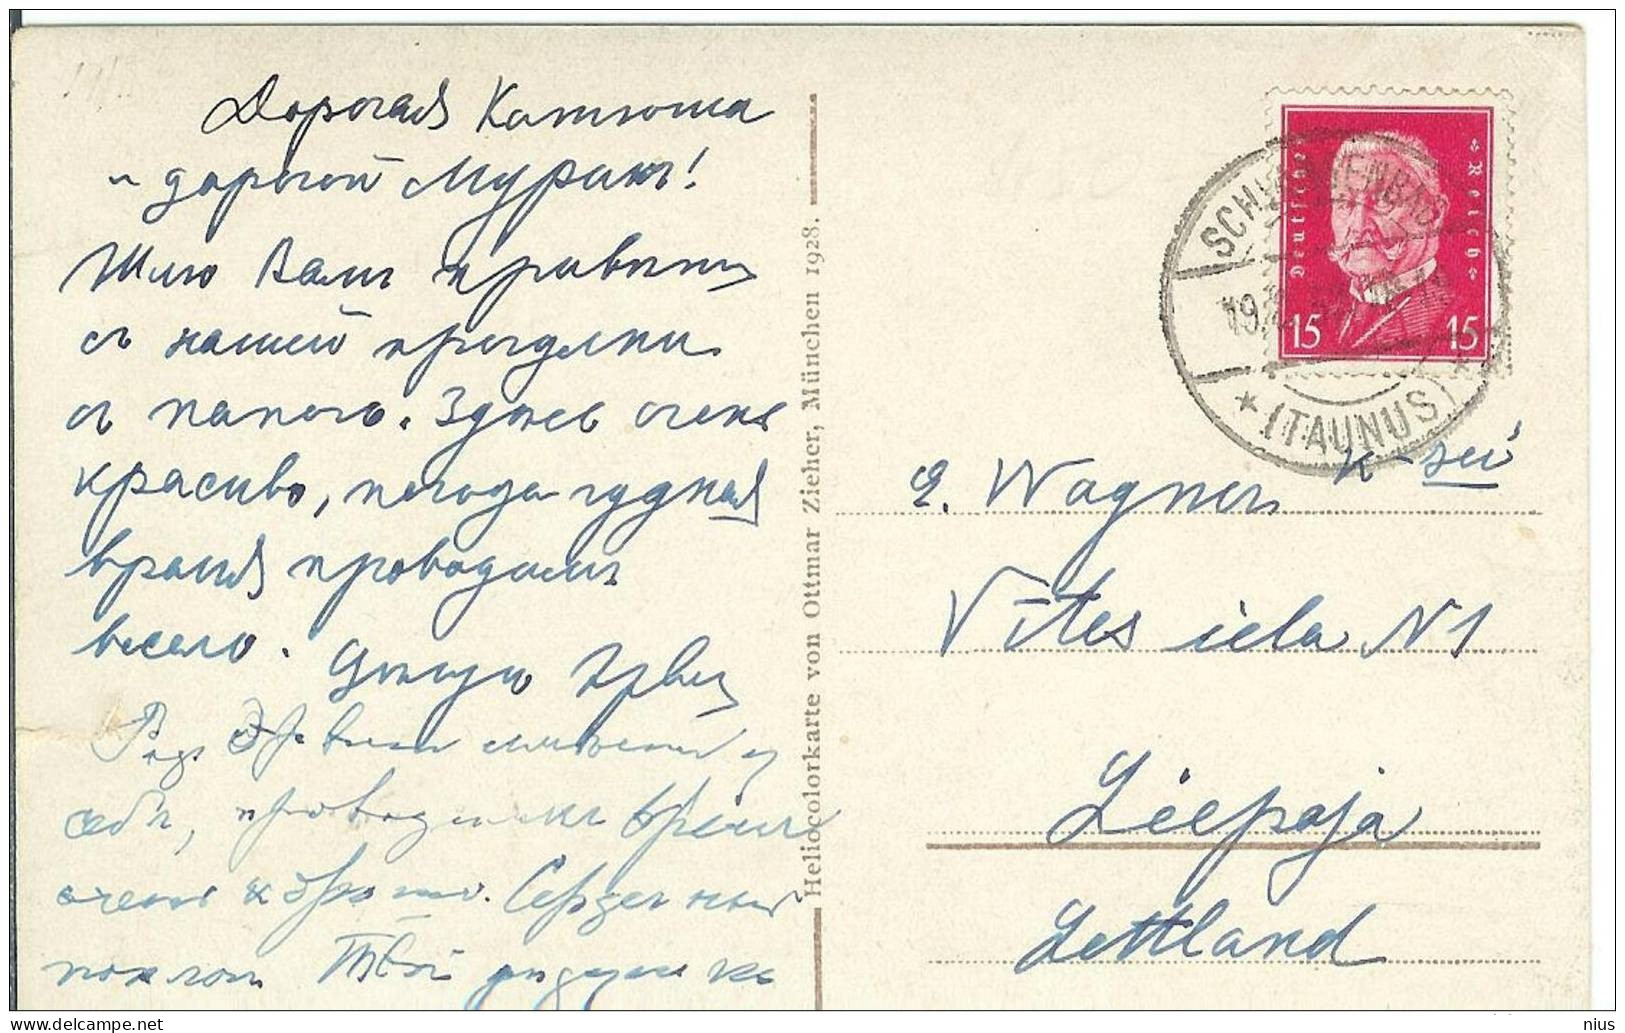 Дорогая Катюша
и дорогой Мурик!
Шлю Вам привет
с нашей прогулки
с папой. Здесь очень
красиво, погода чудная
время проводим
весело. Целую
Рад видеть у
себя, проводим время
очень хорошо. Сердечный
поклон Твой дядушка
Heliocolorkarte von Ottmar Zieher, München 1928.
Deutsches Reich
15 15
SCHLANGENBAD
(TAUNUS)
E. Wagner к-зей
Vītes iela N1
Liepaja
Lettland
delcampe.net
nius